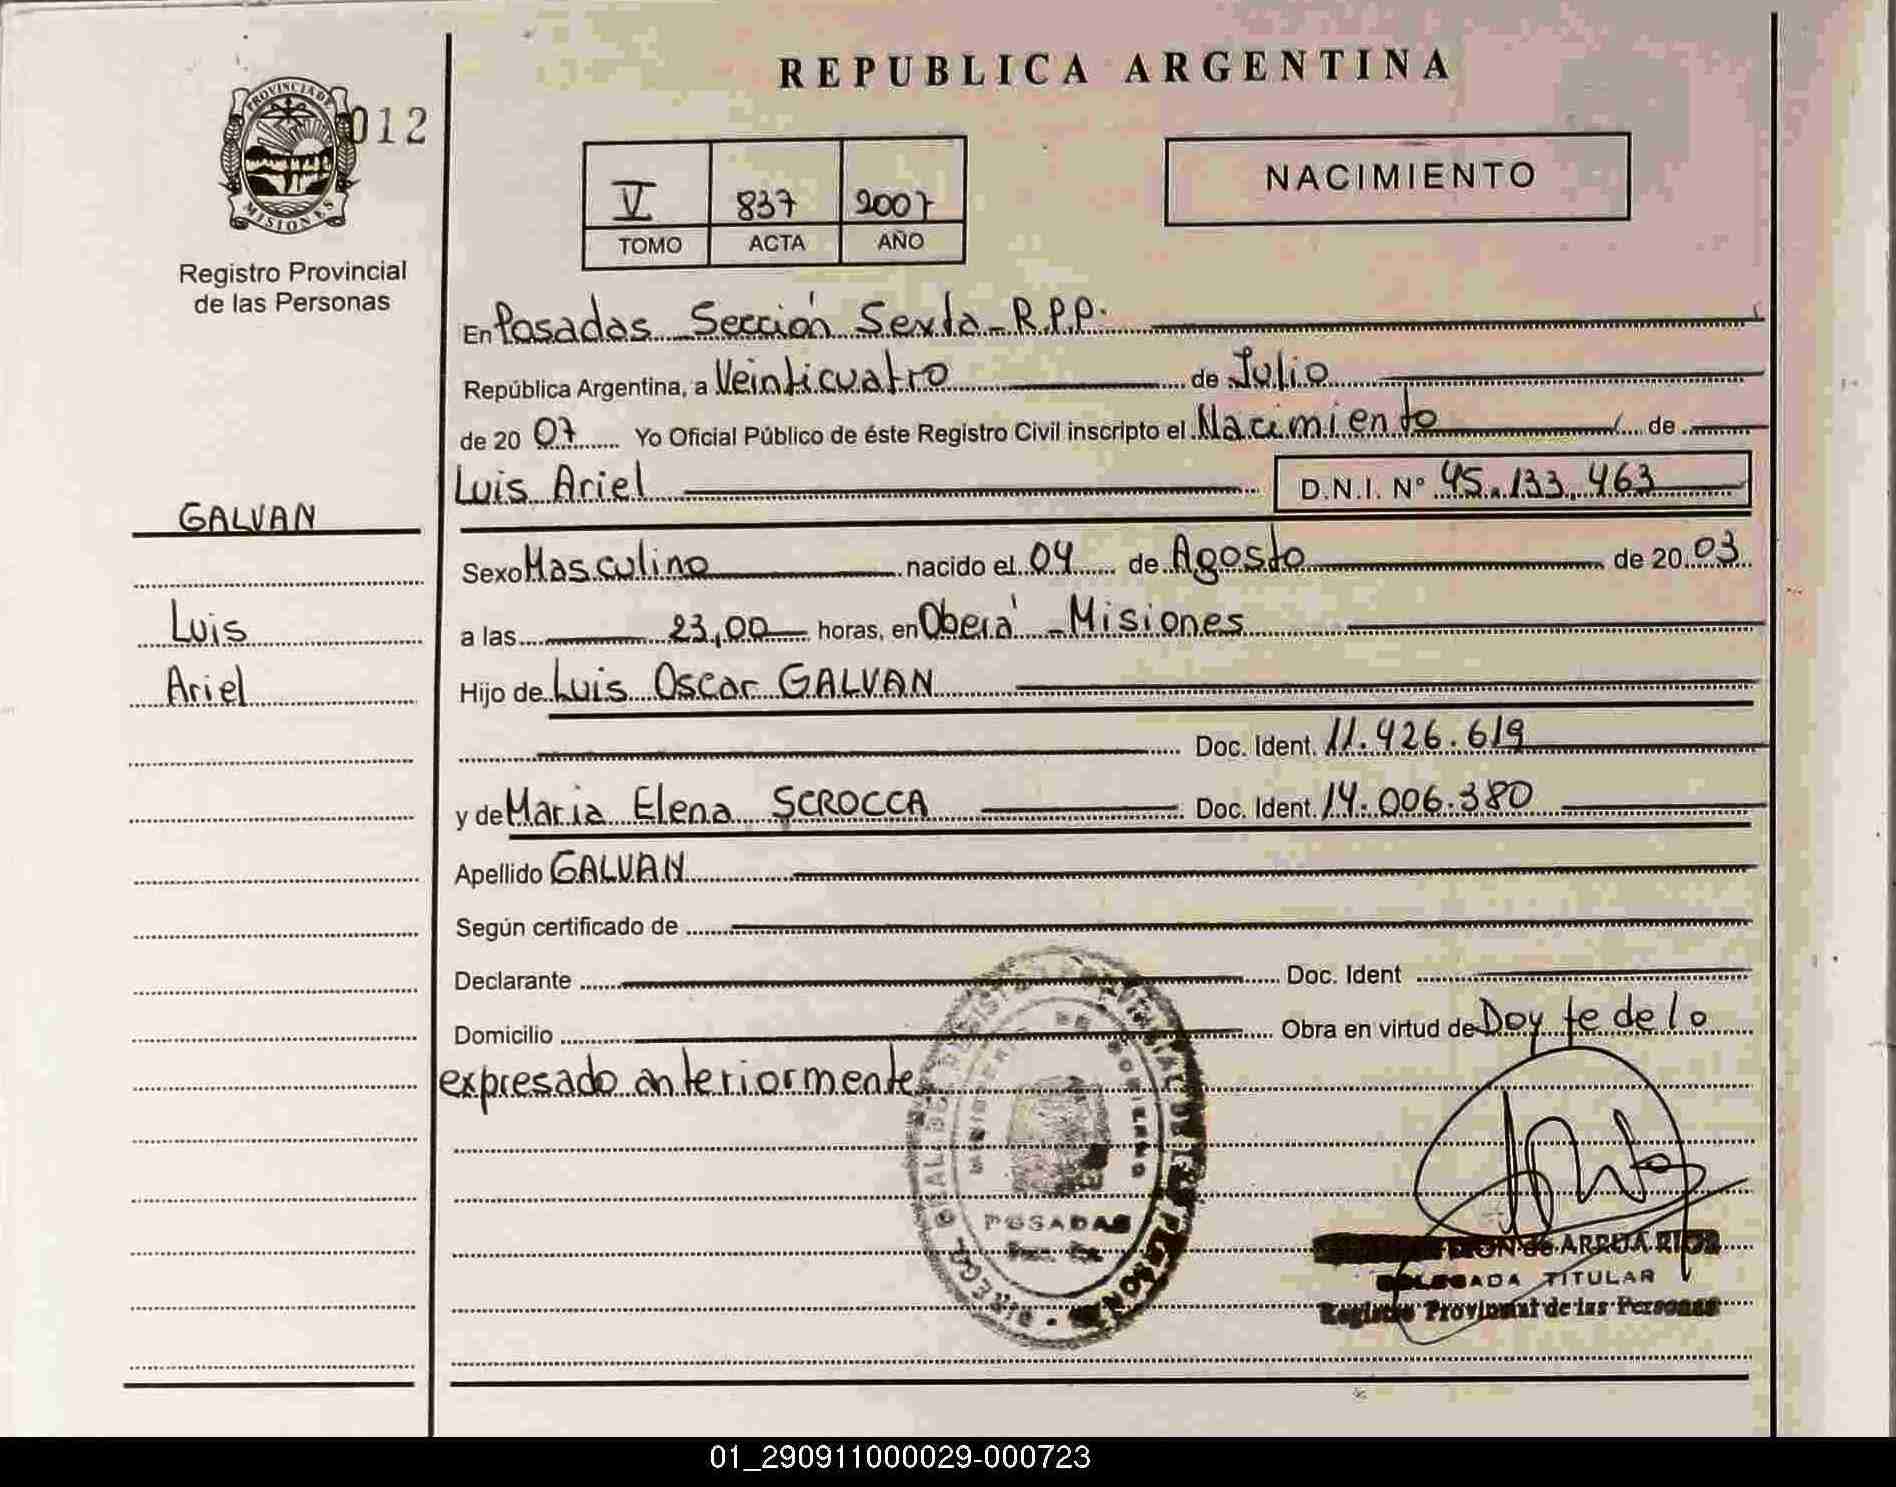 REPUBLICA ARGENTINA
PROVINCIA DE
MISIONES
012
Registro Provincial
de las Personas
V 837 2007
TOMO ACTA AÑO
NACIMIENTO
En Posadas Sección Sexta R.P.P.
República Argentina, a Veinticuatro de Julio
de 2007 Yo Oficial Público de éste Registro Civil inscripto el Nacimiento de
Luis Ariel D.N.I. Nº 45.133.463
GALVAN
Luis
Ariel
Sexo Masculino nacido el 04 de Agosto de 2003
a las 23,00 horas, en Oberá - Misiones
Hijo de Luis Oscar GALVAN
Doc. Ident. 11.426.619
y de Maria Elena SCROCCA Doc. Ident. 14.006.380
Apellido GALVAN
Según certificado de
Declarante Doc. Ident
Domicilio Obra en virtud de Doy fe de lo
expresado anteriormente
POSADAS
de ARRUA RIOS
DELEGADA TITULAR
Registro Provincial de las Personas
01_290911000029-000723